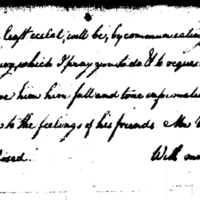 least eclat, will be, by communicating
which I pray you to do & to reques
him him full and true information
to the feelings of his friends. Mr
closed. With